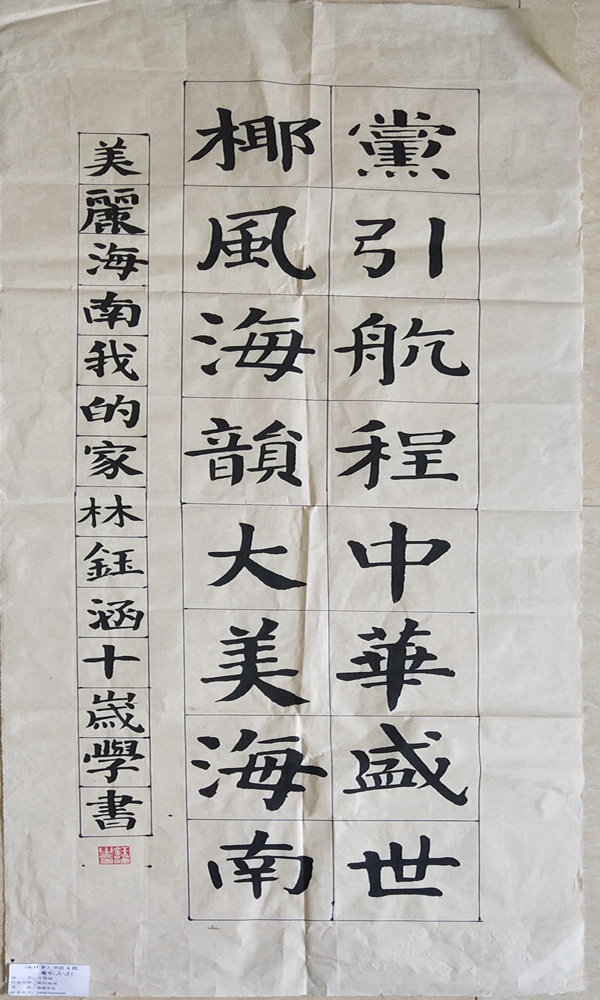 黨引航程中華盛世
椰風海韻大美海南
美麗海南我的家林鈺涵十歲學書